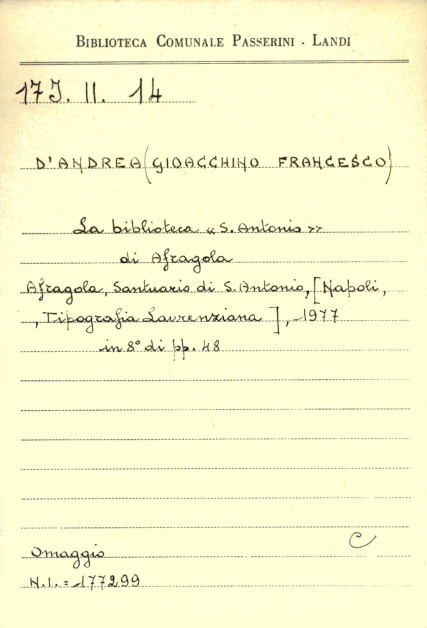 BIBLIOTECA COMUNALE PASSERINI - LANDI
17J. II. 14
D'ANDREA (GIOACCHINO FRANCESCO)
La biblioteca «S. Antonio»
di Afragola
Afragola, Santuario di S. Antonio, [Napoli,
, Tipografia Laurenziana], 1977
in 8° di pp. 48
C
Omaggio
N.I. = 177299